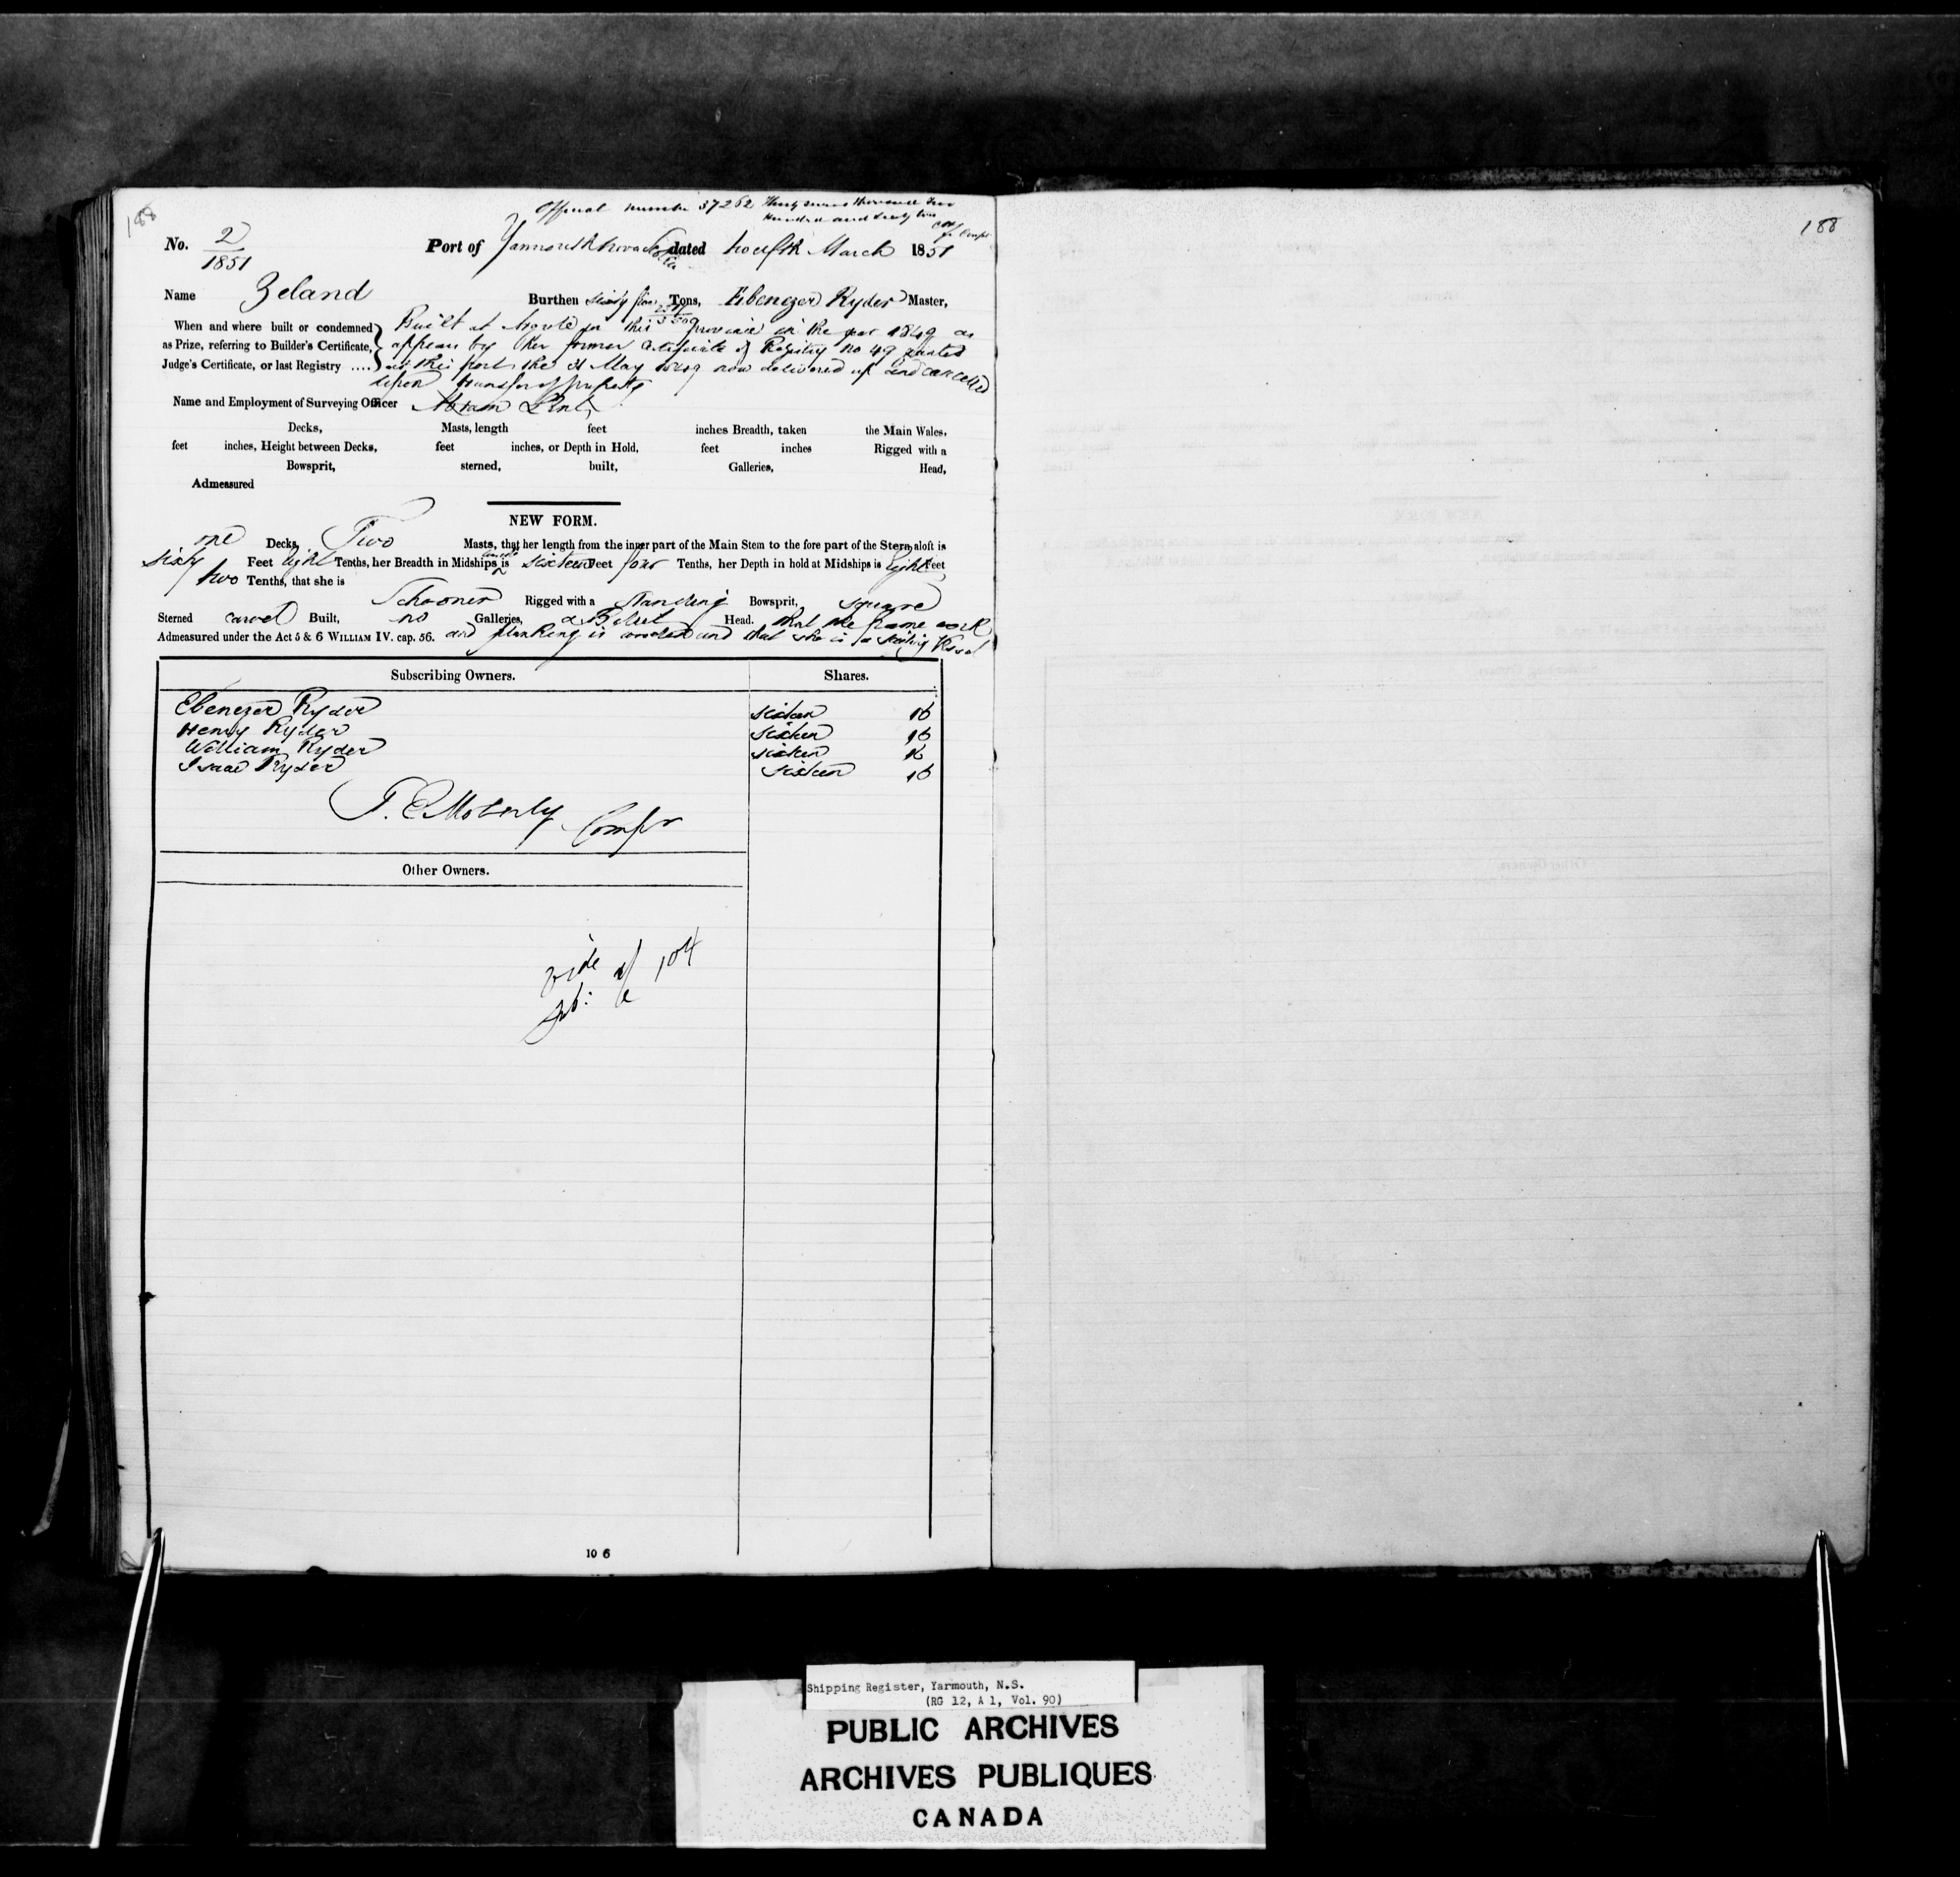 188
Official number 37262 Thirty seven thousand two
hundred and sixty two
No. 2/1851 Port of Yarmouth Nova Scotia dated twelfth March 1851
Name Zeland Burthen sixty Tons, Ebenezer Ryder Master,
When and where built or condemned Built at in this province in the year 1849 as
as Prize, referring to Builder's Certificate, appears by her former Certificate of Registry no 49 granted
Judge's Certificate, or last Registry .... at this port the 31 May 1849 now delivered up and cancelled
upon transfer of property
Name and Employment of Surveying Officer Abram Lent
Decks, Masts, length feet inches Breadth, taken the Main Wales,
feet inches, Height between Decks, feet inches, or Depth in Hold, feet inches Rigged with a
Bowsprit, sterned, built, Galleries, Head,
Admeasured
NEW FORM.
one Decks, Two Masts, that her length from the inner part of the Main Stem to the fore part of the Stern aloft is
sixty Feet eight Tenths, her Breadth in Midships is sixteen Feet four Tenths, her Depth in hold at Midships is eight Feet
two Tenths, that she is
Schooner Rigged with a standing Bowsprit, square
Sterned carvel Built, no Galleries, a Billet Head. that the frame work
Admeasured under the Act 5 & 6 WILLIAM IV. cap. 56. and planking is wooden and that she is a sailing Vessel
Subscribing Owners. Shares.
Ebenezer Ryder sixteen 16
Henry Ryder sixteen 16
William Ryder sixteen 16
Isaac Ryder sixteen 16
T. E Moberly Compr
Other Owners.
vide 104
10 6
188
Shipping Register, Yarmouth, N.S.
(RG 12, A 1, Vol. 90)
PUBLIC ARCHIVES
ARCHIVES PUBLIQUES
CANADA